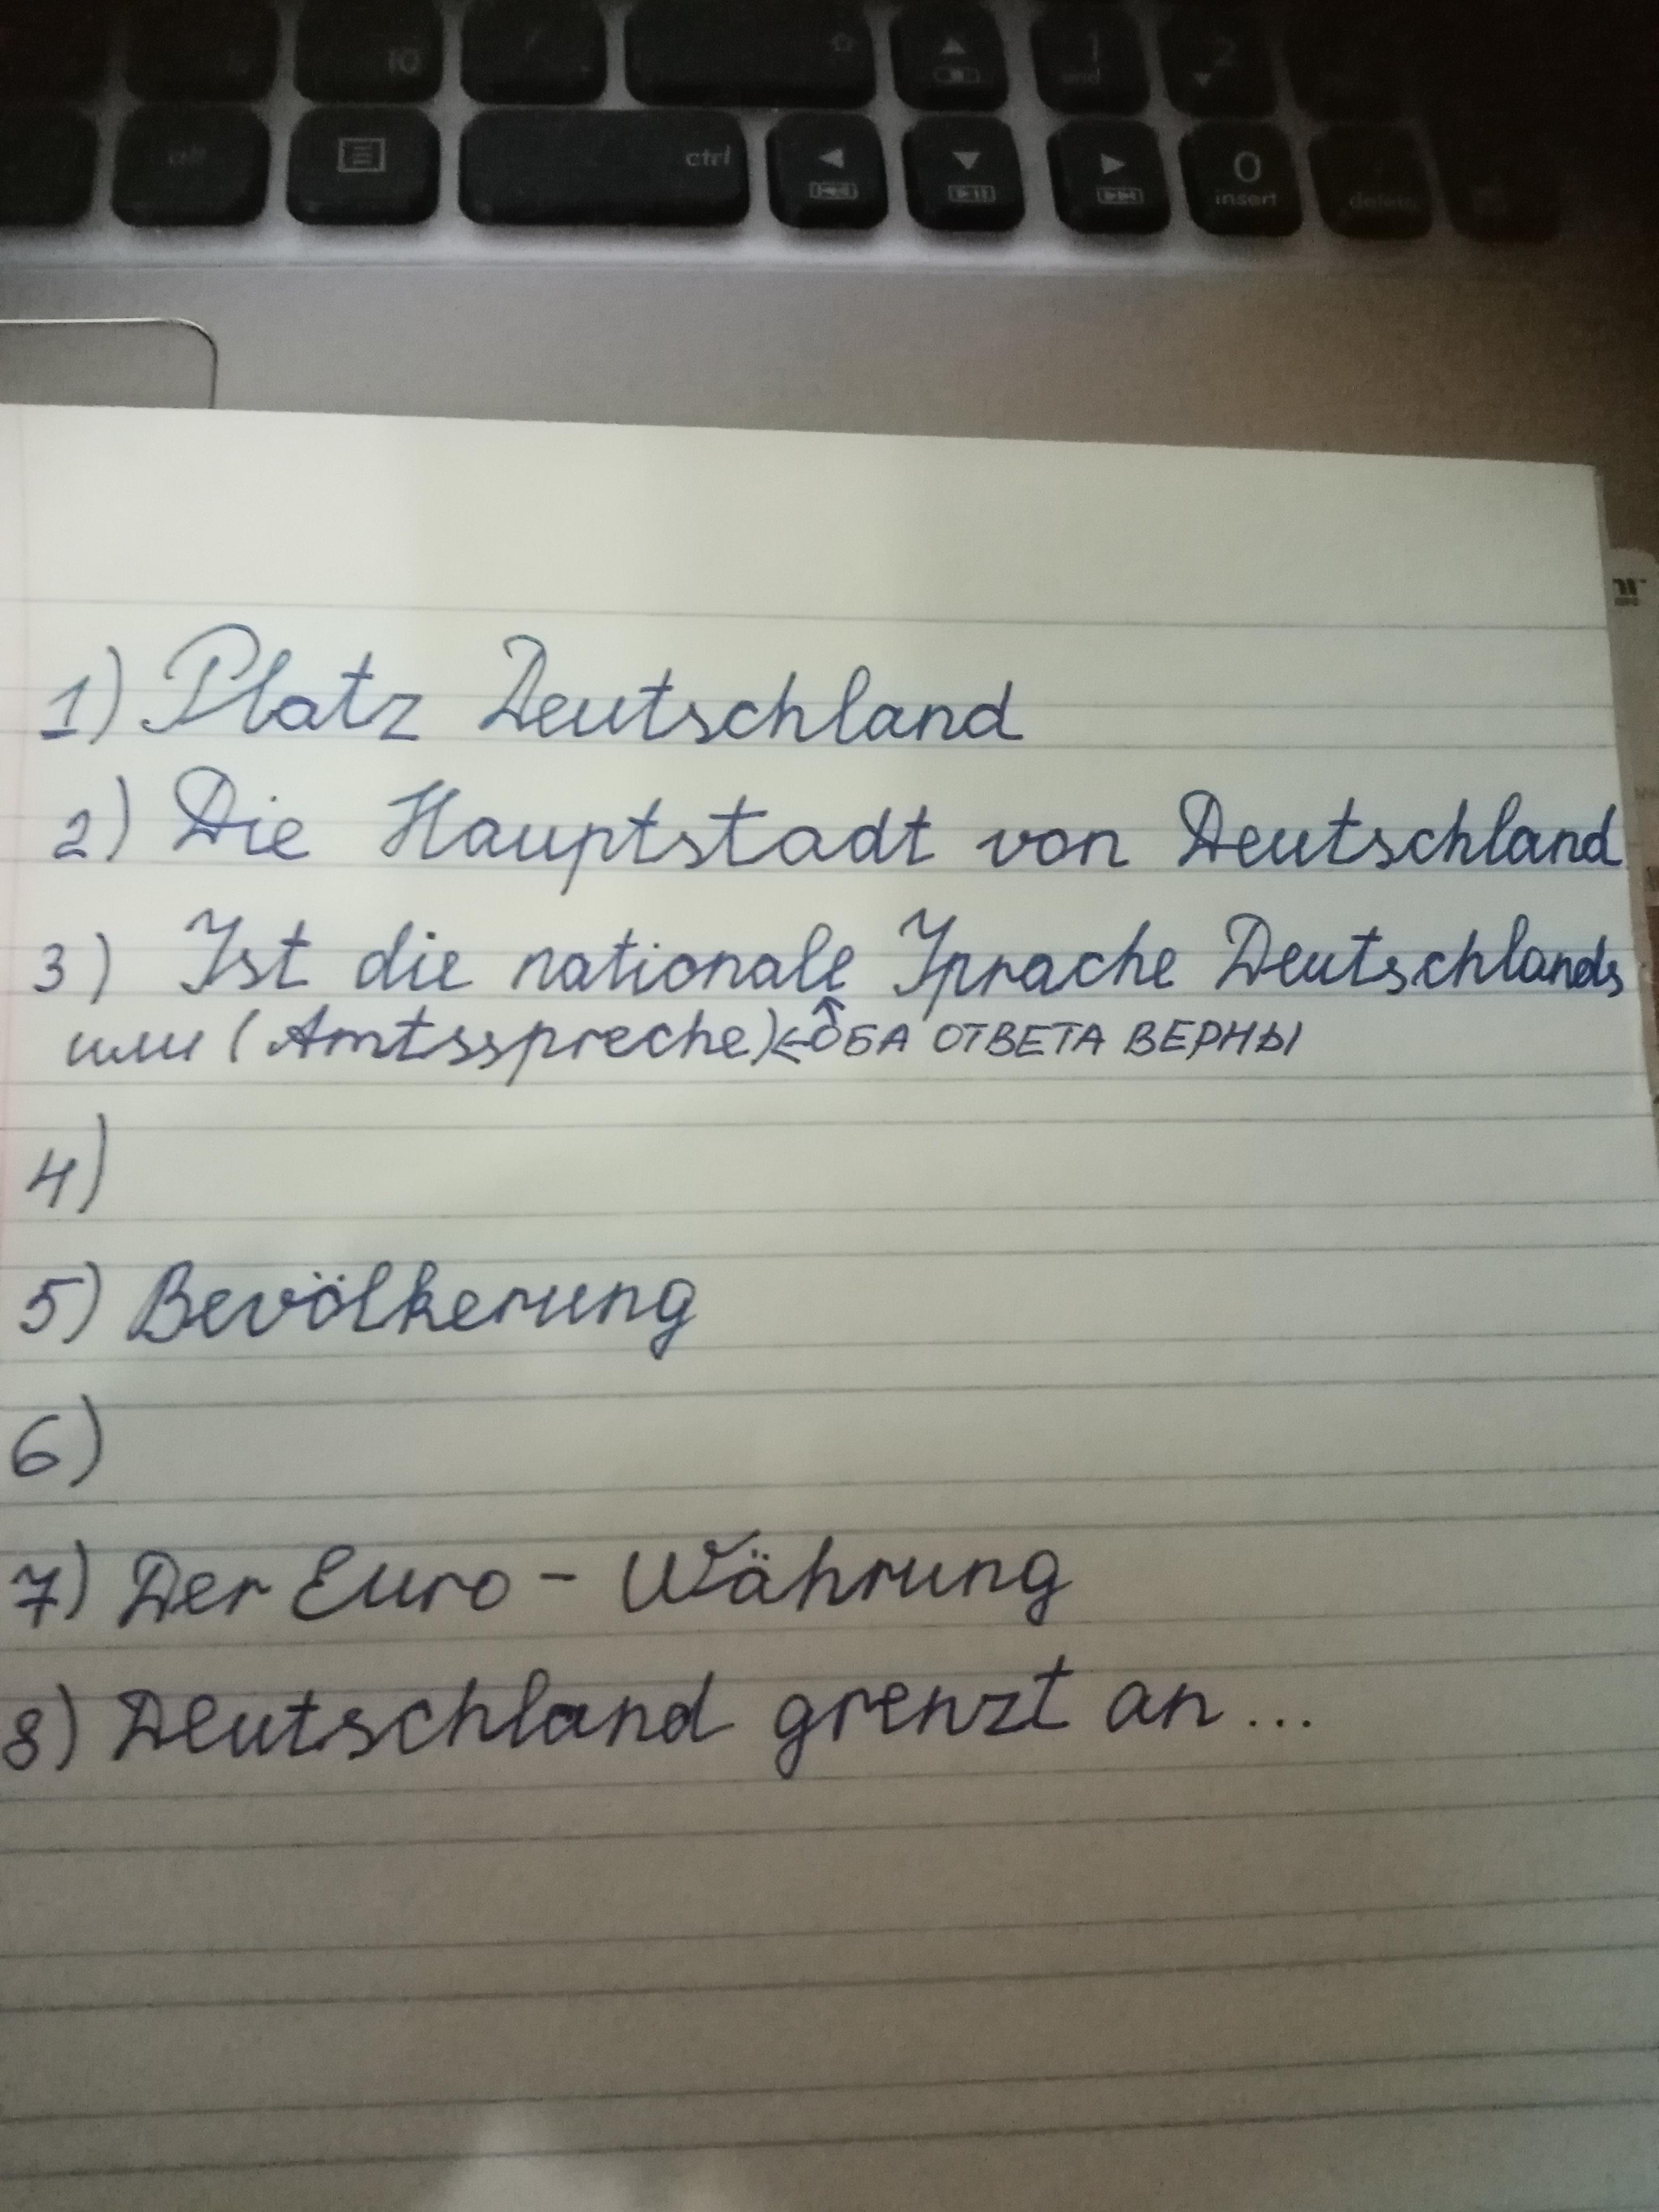 10
1
end
2
alt
ctrl
0
insert
delete
1) Platz Deutschland
2) Die Hauptstadt von Deutschland
3) Ist die nationale Sprache Deutschlands
или (Amtsspreche)←ОБА ОТВЕТА ВЕРНЫ
4)
5) Bevölkerung
6)
7) Der Euro - Währung
8) Deutschland grenzt an...